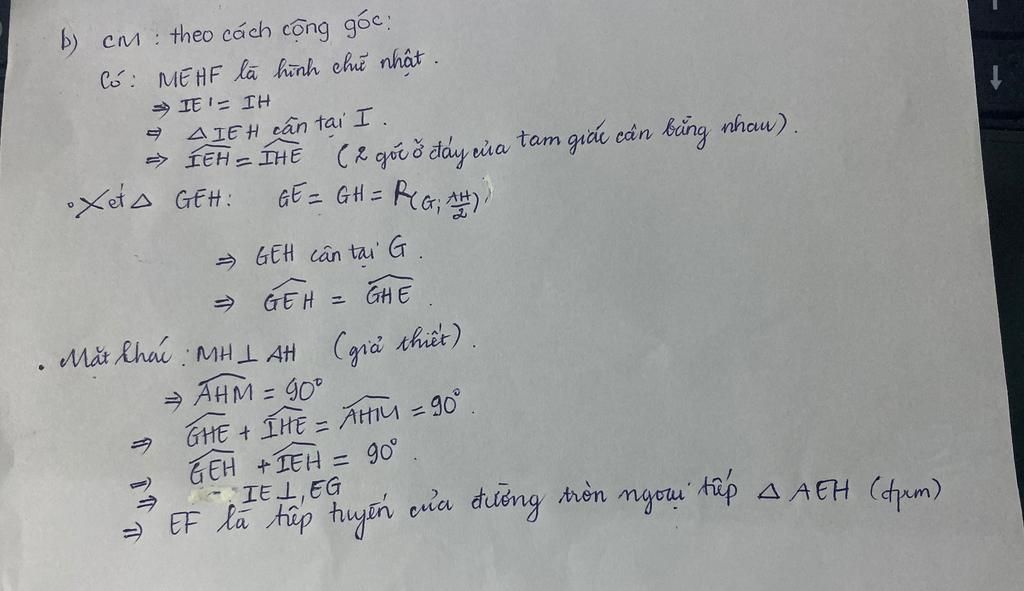 b) CM : theo cách cộng góc:
Có: MEHF là hình chữ nhật.
⇒ IE = IH
⇒ △ IEH cân tại I.
⇒ \widehat{IEH} = \widehat{IHE} (2 góc ở đáy của tam giác cân bằng nhau).
• Xét △ GEH: GE = GH = R(G; \frac{AH}{2})
⇒ GEH cân tại G.
⇒ \widehat{GEH} = \widehat{GHE}.
• Mặt khác: MH ⊥ AH (giả thiết).
⇒ \widehat{AHM} = 90°
⇒ \widehat{GHE} + \widehat{IHE} = \widehat{AHM} = 90°.
⇒ \widehat{GEH} + \widehat{IEH} = 90°.
⇒ IE ⊥ EG
⇒ EF là tiếp tuyến của đường tròn ngoại tiếp △ AEH (đpcm)